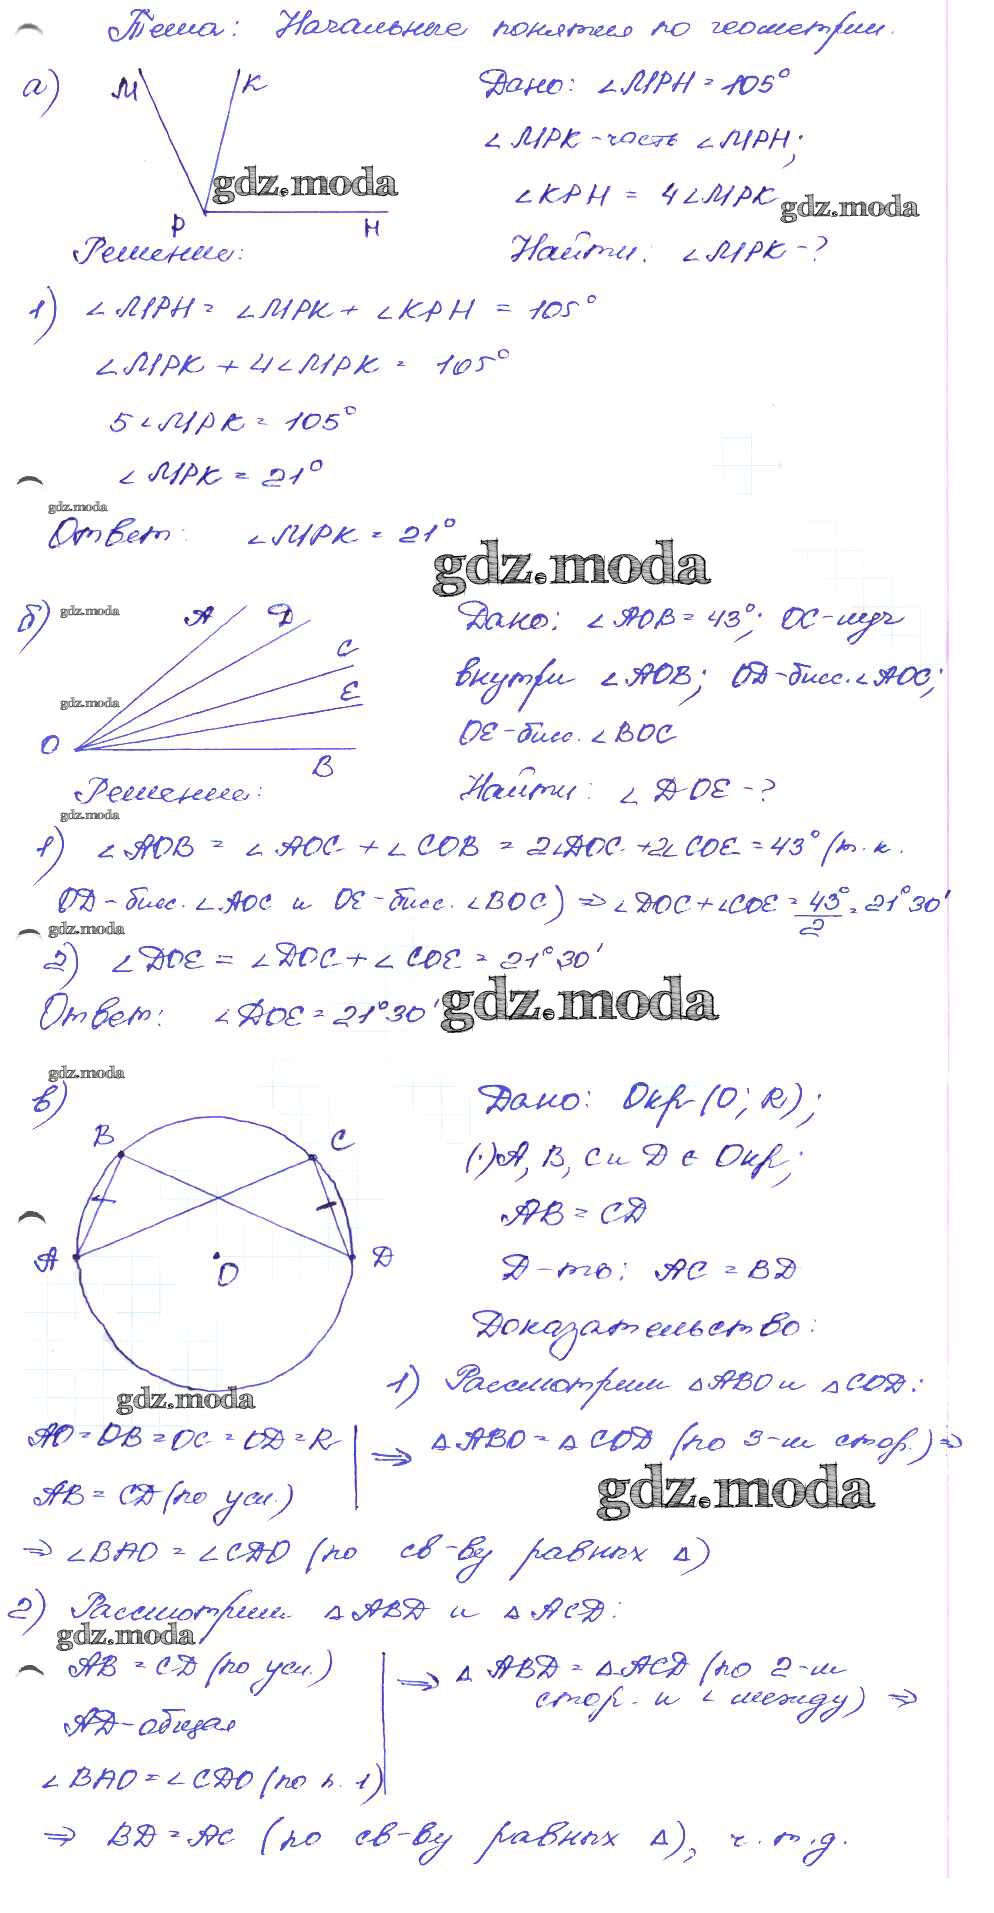 Тема: Начальные понятия по геометрии.
а) M K
P H
Дано: ∠MPH = 105°
∠MPK - часть ∠MPH;
∠KPH = 4∠MPK
gdz.moda
gdz.moda
Найти: ∠MPK - ?
Решение:
1) ∠MPH = ∠MPK + ∠KPH = 105°
∠MPK + 4∠MPK = 105°
5∠MPK = 105°
∠MPK = 21°
gdz.moda
Ответ: ∠MPK = 21°
gdz.moda
б) gdz.moda A D
C
E
gdz.moda
O
B
Дано: ∠AOB = 43°; OC - луч
внутри ∠AOB; OD - бисс. ∠AOC;
OE - бисс. ∠BOC
Найти: ∠DOE - ?
Решение:
gdz.moda
1) ∠AOB = ∠AOC + ∠COB = 2∠DOC + 2∠COE = 43° (т.к.
OD - бисс. ∠AOC и OE - бисс. ∠BOC) ⇒ ∠DOC + ∠COE = 43°/2 = 21°30'
gdz.moda
2) ∠DOE = ∠DOC + ∠COE = 21°30'
Ответ: ∠DOE = 21°30'
gdz.moda
gdz.moda
в)
B C
A D
O
Дано: Окр (O; R);
(·) A, B, C и D ∈ Окр;
AB = CD
Д-ть: AC = BD
Доказательство:
1) Рассмотрим △ABO и △COD:
gdz.moda
AO = OB = OC = OD = R
AB = CD (по усл.)
⇒ △ABO = △COD (по 3-м стор.) ⇒
gdz.moda
⇒ ∠BAO = ∠CDO (по св-ву равных △)
2) Рассмотрим △ABD и △ACD:
gdz.moda
AB = CD (по усл.)
AD - общая
∠BAO = ∠CDO (по п. 1)
⇒ △ABD = △ACD (по 2-м
стор. и ∠ между) ⇒
⇒ BD = AC (по св-ву равных △), ч.т.д.